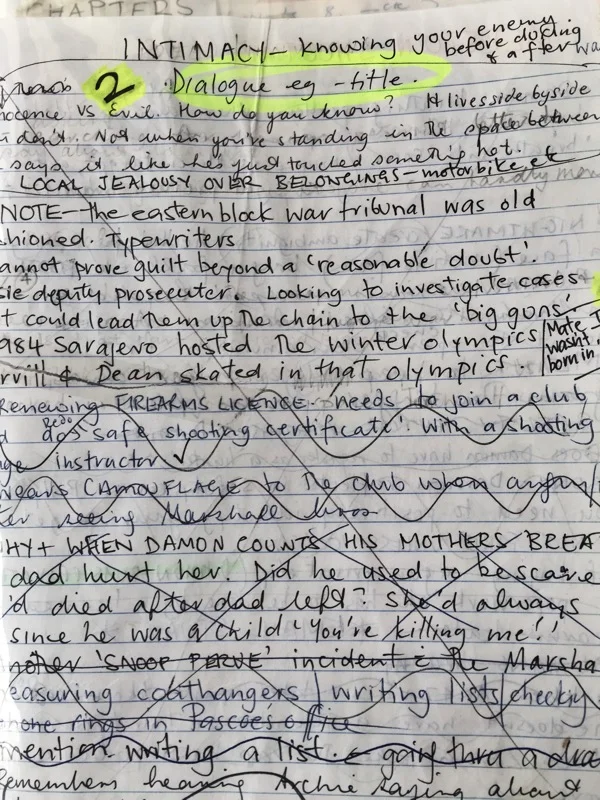 CHAPTERS
INTIMACY - knowing your enemy
before during
& after wa
2 Dialogue eg - title.
nocence VS Evil. How do you know? It lives side by side
u don't. Not when you're standing in the space between
says it like he's just touched something hot.
LOCAL JEALOUSY OVER BELONGINGS - motorbike etc
NOTE - the eastern block war tribunal was old
shioned. Typewriters
annot prove guilt beyond a 'reasonable doubt'.
sie deputy prosecuter. Looking to investigate cases
t could lead them up the chain to the 'big guns'
984 Sarajevo hosted the winter olympics
Mate, I
wasn't
born in
rvill & Dean skated in that olympics.
Renewing FIREARMS LICENCE - needs to join a club
Redo
do 'safe shooting certificate'. With a shooting
ge instructor ✓
Wears CAMOUFLAGE to the club when angry/
ter seeing Marshall
HY + WHEN DAMON COUNTS HIS MOTHERS BREA
dad hurt her. Did he used to be scare
'd died after dad left? She'd always
since he was a child 'You're killing me!'
nother 'SNOOP PERVE' incident c The Marsha
easuring coathangers / writing lists / checkig
hone rings in Pascoe's office
mention writing a list. - going thru a dra
Remembers hearing Archie saying about